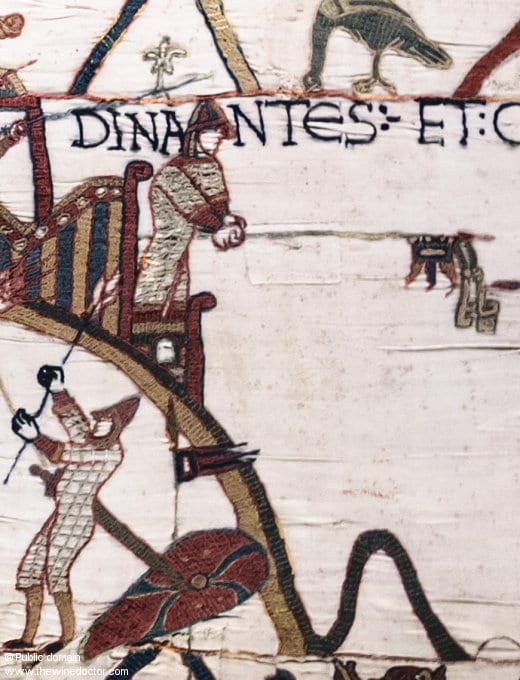 DINANTES : ET : C
© Public domain
www.thewinedoctor.com